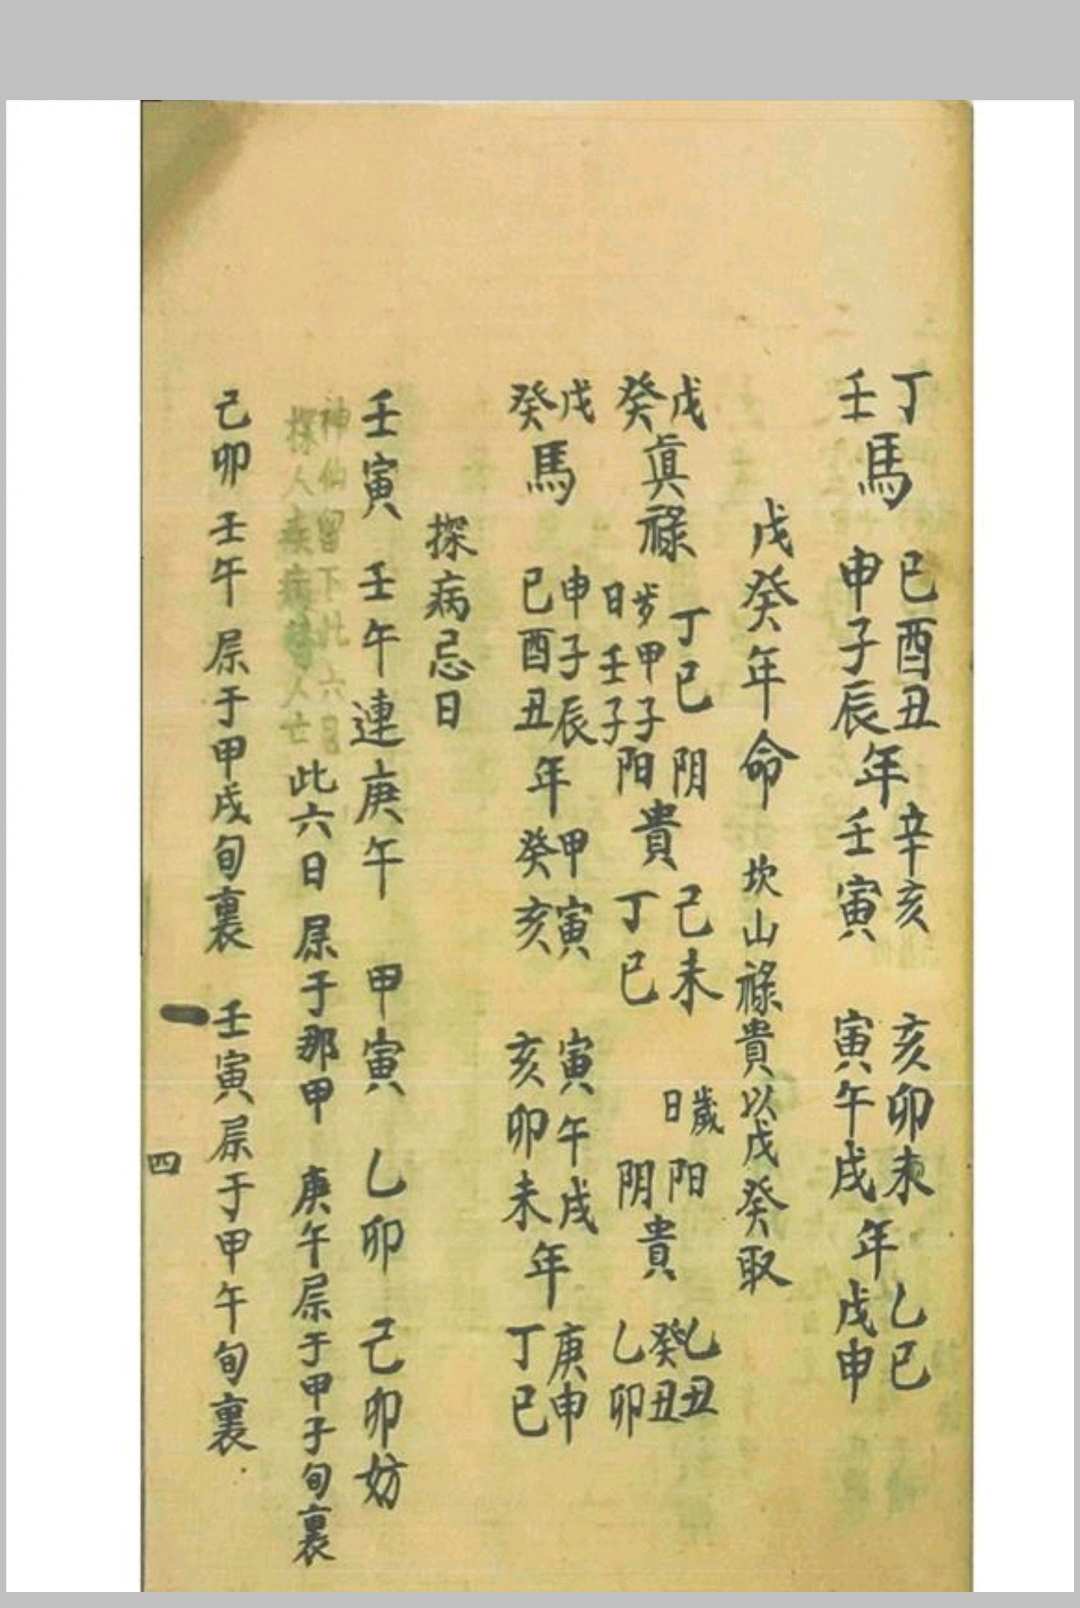 丁壬馬 巳酉丑申子辰年辛亥壬寅 亥卯未寅午戌年乙巳戊申
戊癸年命 坎山祿貴以戊癸取
戊癸真祿 丁巳 歩甲子日壬子 阴阳貴 己未丁巳 歲日 阳阴貴 乙丑癸丑乙卯
戊癸馬 申子辰巳酉丑年甲寅癸亥 寅午戌亥卯未年庚申丁巳
探病忌日
壬寅 壬午連庚午 甲寅 乙卯 己卯妨
神仙留下此六日
探人疾病替人亡
此六日屎于那甲 庚午屎于甲子旬裏
己卯壬午屎于甲戌旬裏 壬寅屎于甲午旬裏
一 四